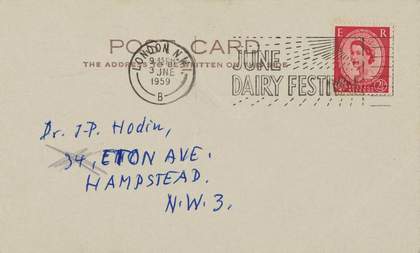 POST CARD
THE ADDRESS TO BE WRITTEN ON
LONDON N.W.
3 JNE
1959
B
JUNE
DAIRY FESTIVAL
E R
Dr. J-P. Hodin,
34, ETON AVE.
HAMPSTEAD.
N.W.3.